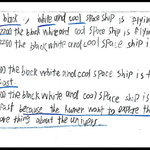 black, white and cool space ship is flying
2200 the black white and cool space ship is flying
2200 the black white and cool space ship is
00 the black white and cool space ship is f
cost.
00 the black white and cool space ship is
fast because the human want to explore the
ome thing about the univers